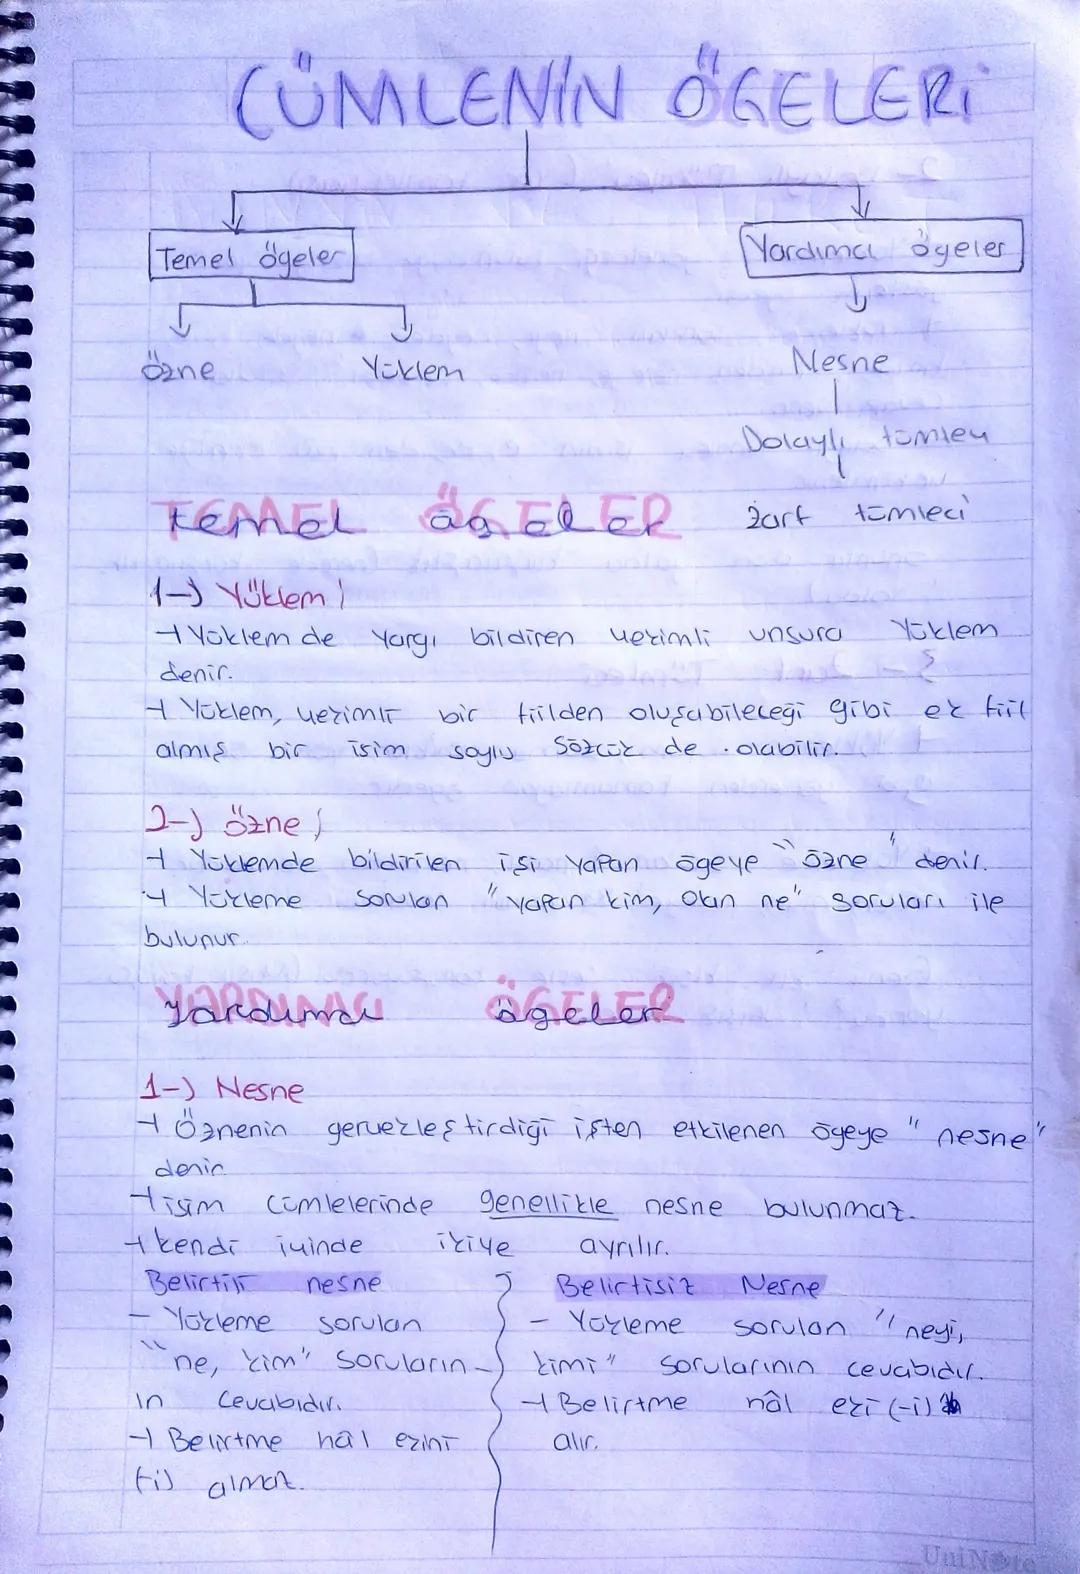 CÜMLENİN ÖGELERİ
Temel ögeler
Yardımcı ögeler
Özne
Yüklem
Nesne
Dolaylı tümleç
Zarf tümleci
TEMEL ÖGELER
temel ögeler
1-) Yüklem;
→ Yüklem de yargı bildiren çekimli unsura yüklem
denir.
→ Yüklem, çekimli bir fiilden oluşabileceği gibi ek fiil
almış bir isim soylu sözcük de olabilir.
2-) Özne;
→ Yüklemde bildirilen işi yapan ögeye "özne" denir.
→ Yükleme sorulan "yapan kim, olan ne" soruları ile
bulunur.
YARDIMCI ÖGELER
Yardımcı ögeler
1-) Nesne
→ Öznenin gerçekleştirdiği işten etkilenen ögeye "nesne"
denir.
→ isim cümlelerinde genellikle nesne bulunmaz.
→ kendi içinde ikiye ayrılır.
Belirtili nesne
- Yükleme sorulan
"ne, kim" soruların-
ın cevabıdır.
→ Belirtme hâl ekini
(-i) almaz.
Belirtisiz Nesne
- Yükleme sorulan "neyi,
kimi" sorularının cevabıdır.
→ Belirtme hâl eki (-i)
alır.
UniNote